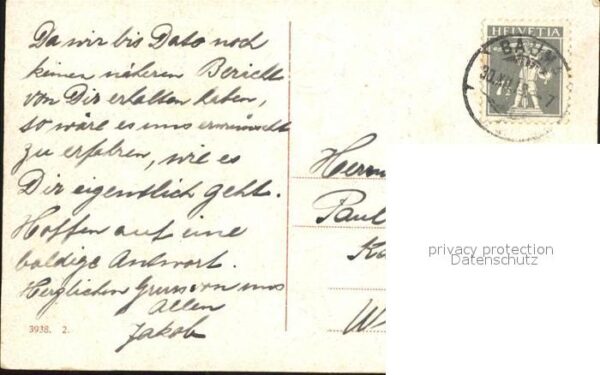 Da wir bis Dato noch
keinen näheren Bericht
von Dir erhalten haben,
so wäre es uns erwünscht
zu erfahren, wie es
Dir eigentlich geht.
Hoffen auf eine
baldige Antwort.
Herzlichen Gruss von uns
Allen
Jakob
3938. 2.
HELVETIA
BAUM
30.XII
7
Herrn
Paul
privacy protection
Datenschutz